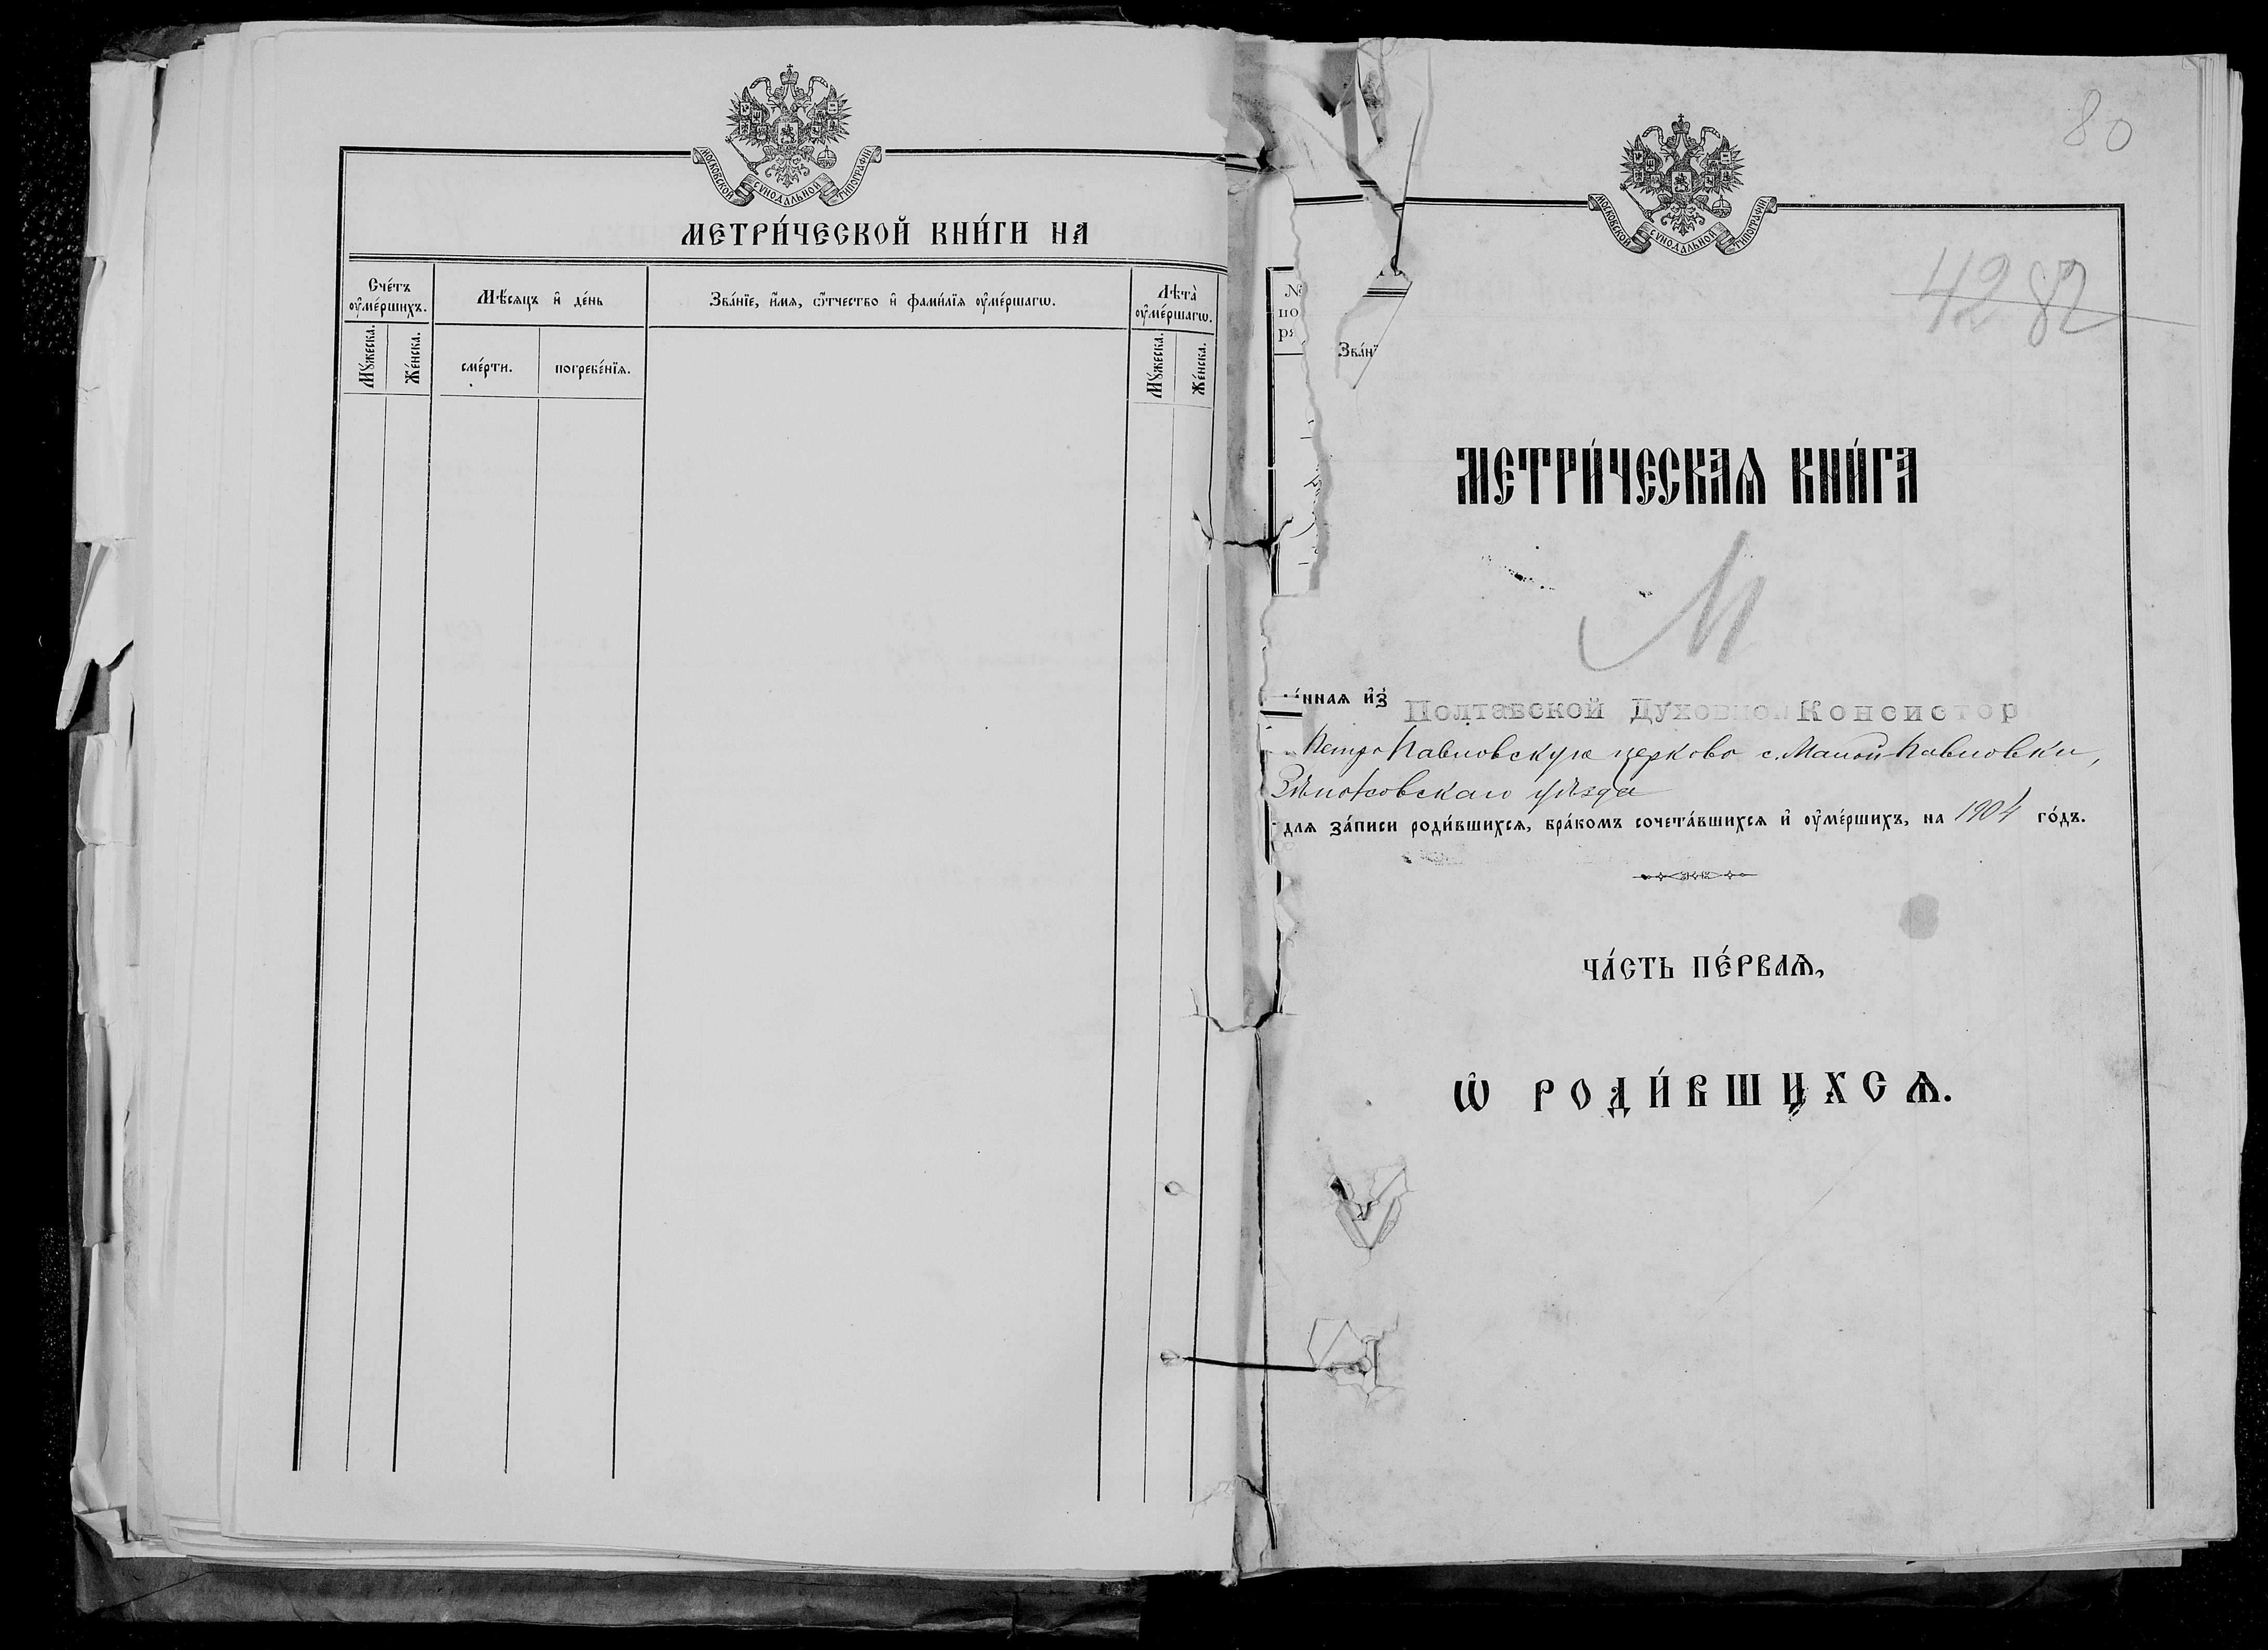 МОСКОВСКОЙ СѴНОДАЛЬНОЙ ТИПОГРАФІИ
МЕТРИ́ЧЕСКОЙ КНИ́ГИ НА
Сче́тъ ᲂу҆ме́ршихъ.
Мꙋ́жеска.
Же́нска.
Мѣ́сяцъ и҆ де́нь
сме́рти.
погребе́нїѧ.
Зва́нїе, и҆́мѧ, ѻ҆́тчество и҆ фами́лїѧ ᲂу҆ме́ршагѡ.
Лѣта̀ ᲂу҆ме́ршагѡ.
Мꙋ́жеска.
Же́нска.
80
МОСКОВСКОЙ СѴНОДАЛЬНОЙ ТИПОГРАФІИ
42 82
№
по
ря
Зва́нї
МЕТРИ́ЧЕСКАѦ КНИ́ГА
М
а́ннаѧ и҆з̾ Полтавской Духовной Консистор
Петро Павловскую церковь с. Малой-Павловки,
Зѣньковскаго уѣзда
для за́писи роди́вшихсѧ, бра́комъ сочета́вшихсѧ и҆ ᲂу҆ме́ршихъ, на 1904 го́дъ.
ЧА́СТЬ ПЕ́РВАѦ,
Ѡ҆ РОДИ́ВШИХСѦ.